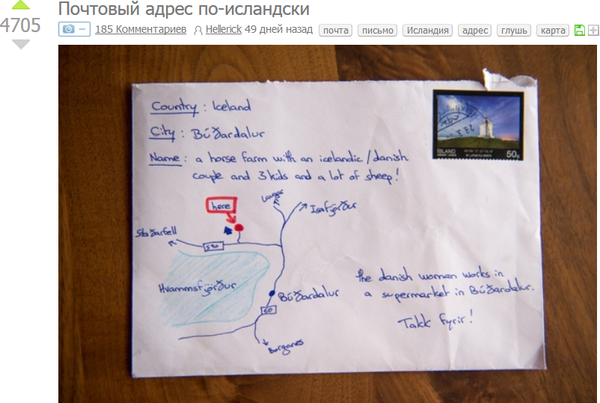 Почтовый адрес по-исландски
4705
185 Комментариев Hellerick 49 дней назад почта письмо Исландия адрес глушь карта
Country: Iceland
City: Búðardalur
Name: a horse farm with an icelandic/danish
couple and 3 kids and a lot of sheep!
here
Ísafjörður
590
Hvammsfjörður
Búðardalur
60
Borganes
the danish woman works in
a supermarket in Búðardalur.
Takk fyrir!
ÍSLAND
50g